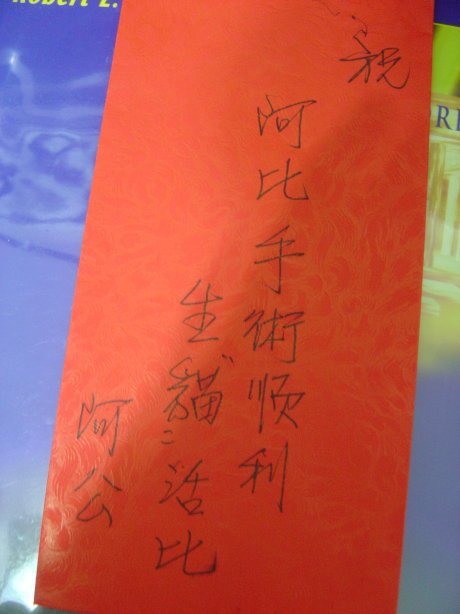 Robert L.
祝
阿比手術顺利
生貓〻活比
阿公